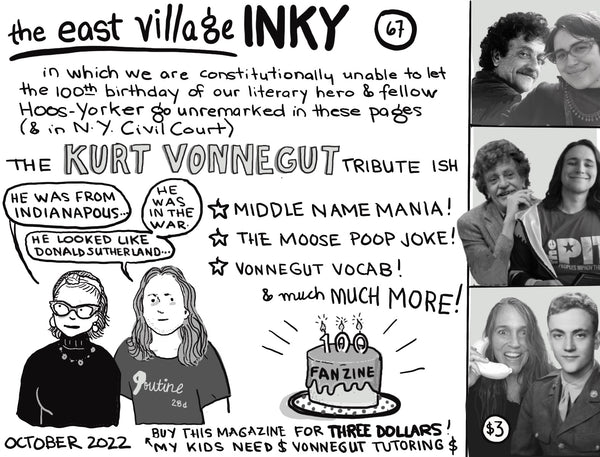 the east village INKY 67
in which we are constitutionally unable to let
the 100th birthday of our literary hero & fellow
Hoos-Yorker go unremarked in these pages
(& in N.Y. Civil Court)
THE KURT VONNEGUT TRIBUTE ISH
HE WAS FROM
INDIANAPOLIS...
HE
WAS
IN THE
WAR.
HE LOOKED LIKE
DONALD SUTHERLAND...
☆ MIDDLE NAME MANIA!
☆ THE MOOSE POOP JOKE!
☆ VONNEGUT VOCAB!
& much MUCH MORE!
100
FANZINE
Poutine
2Bd
OCTOBER 2022
BUY THIS MAGAZINE FOR THREE DOLLARS!
MY KIDS NEED $ VONNEGUT TUTORING $
the PIT
$3